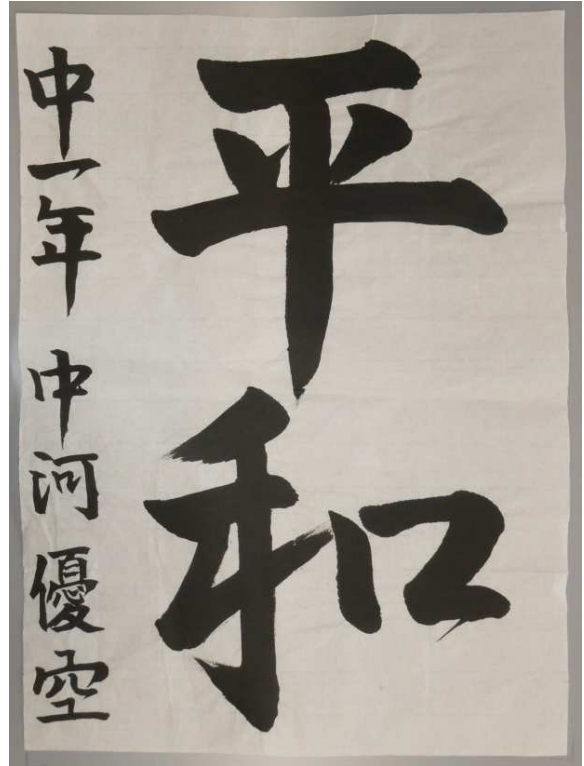 平和
中一年 中河優空